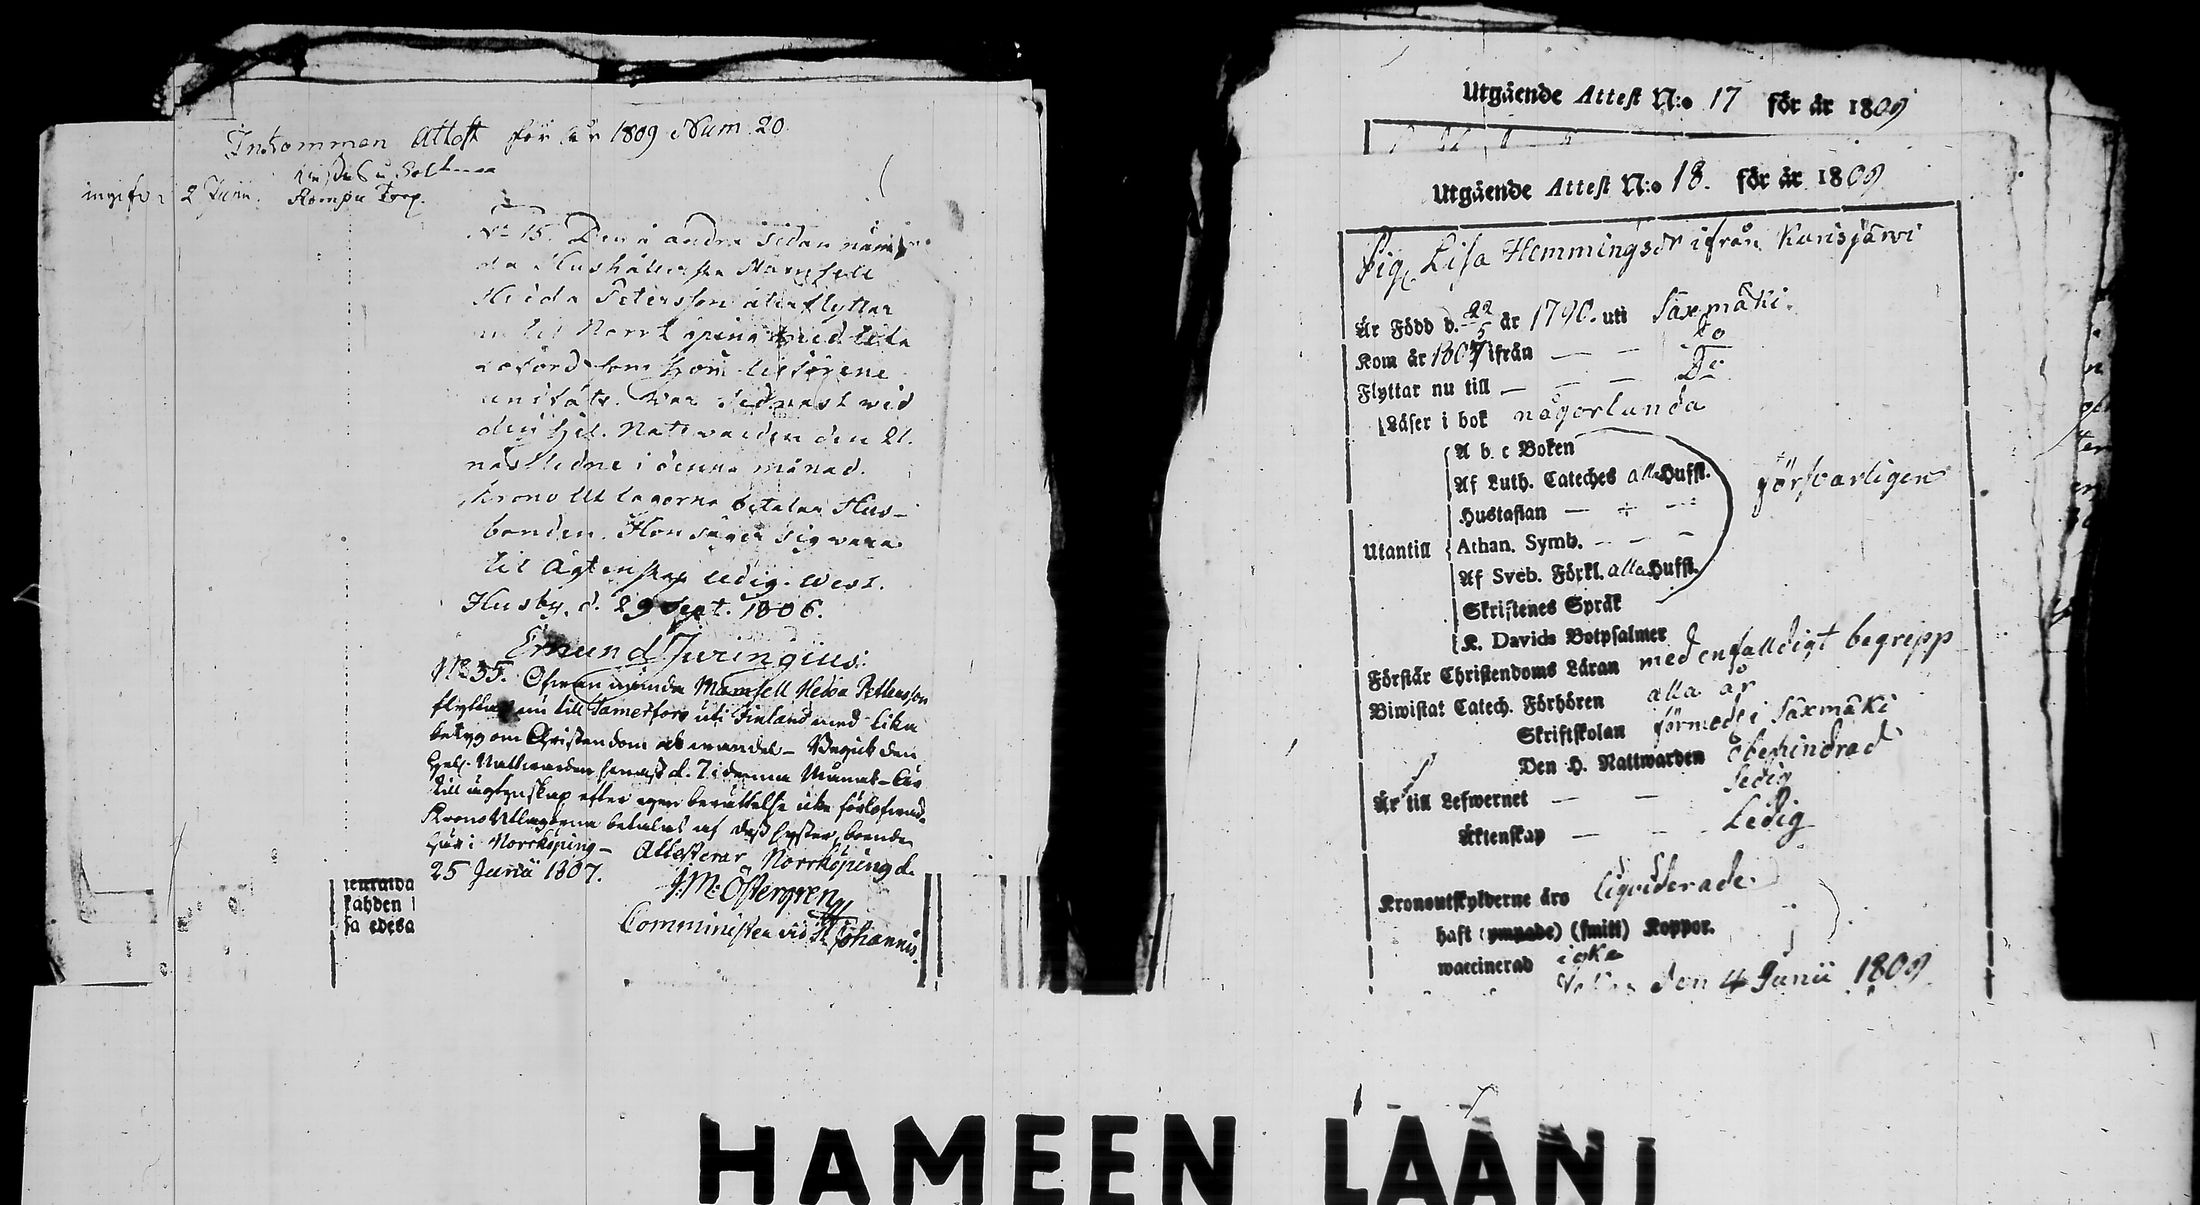 Inkommen Attest för år 1809 Num 20.
2 Junii.
No 15. Den å andra sidan nämn-
da Hushållerska Mamsell
Hedda Petersson återflyttar
nu til Norrköping med lika
loford som hon til förene
undfåtr. War sidnast wid
den hel. Nattwarden den 21.
nästledne i denna månad.
Krono Utlagorna betalar Hus-
bonden. Hon säger sig wara
til Ägtenskap ledig. West.
Husby. d. 29 Sept. 1806.
Emund Juringius.
No 35. Ofwannämnda Mamsell Hedda Pettersson
flyttar nu till Tamerfors uti Finland med lika
betyg om Christendom och wandel – Begick den
Hel. Nattwarden senast d. 7 i denna Månad – Är
till ägtenskap efter egen berättelse icke förlofwad.
Krono Utlagorna betalas af dess Syster, boende
här i Norrköping – Attesterar Norrköping d.
25 Junii 1807.
J: M: Östergren
Comminister vid St Johannis.
kahden
sa edesa
Utgående Attest N:o 17 för år 1809
Utgående Attest N:o 18. för år 1809
Pig. Lisa Hemmingsdr ifrån Kurisjärvi
Är Född d. 22/5 år 1790. uti Säxmäki.
Kom år 1807 ifrån — — Do
Flyttar nu till — — — Do
Läser i bok någorlunda
A b c Boken
Af Luth. Cateches alla Hufst.
Hustaflan — + —
Utantill Athan. Symb. — — —
försvarligen
Af Sveb. Förkl. alla Hufst.
Skriftenes Språk
K. Davids Botpsalmer
Förstår Christendoms Läran med enfalldigt begrepp
Biwistat Catech. Förhören alla år
Skriftskolan förmodel. i Säxmäki
Den H. Nattwarden obehindrad
Är till Lefwernet — — ledig
Äktenskap — — Ledig
Kronoutskylderne äro liqviderade.
haft (ympade) (smitt) Koppor.
waccinerad icke
den 4 Junii 1809
HAMEEN LAANI